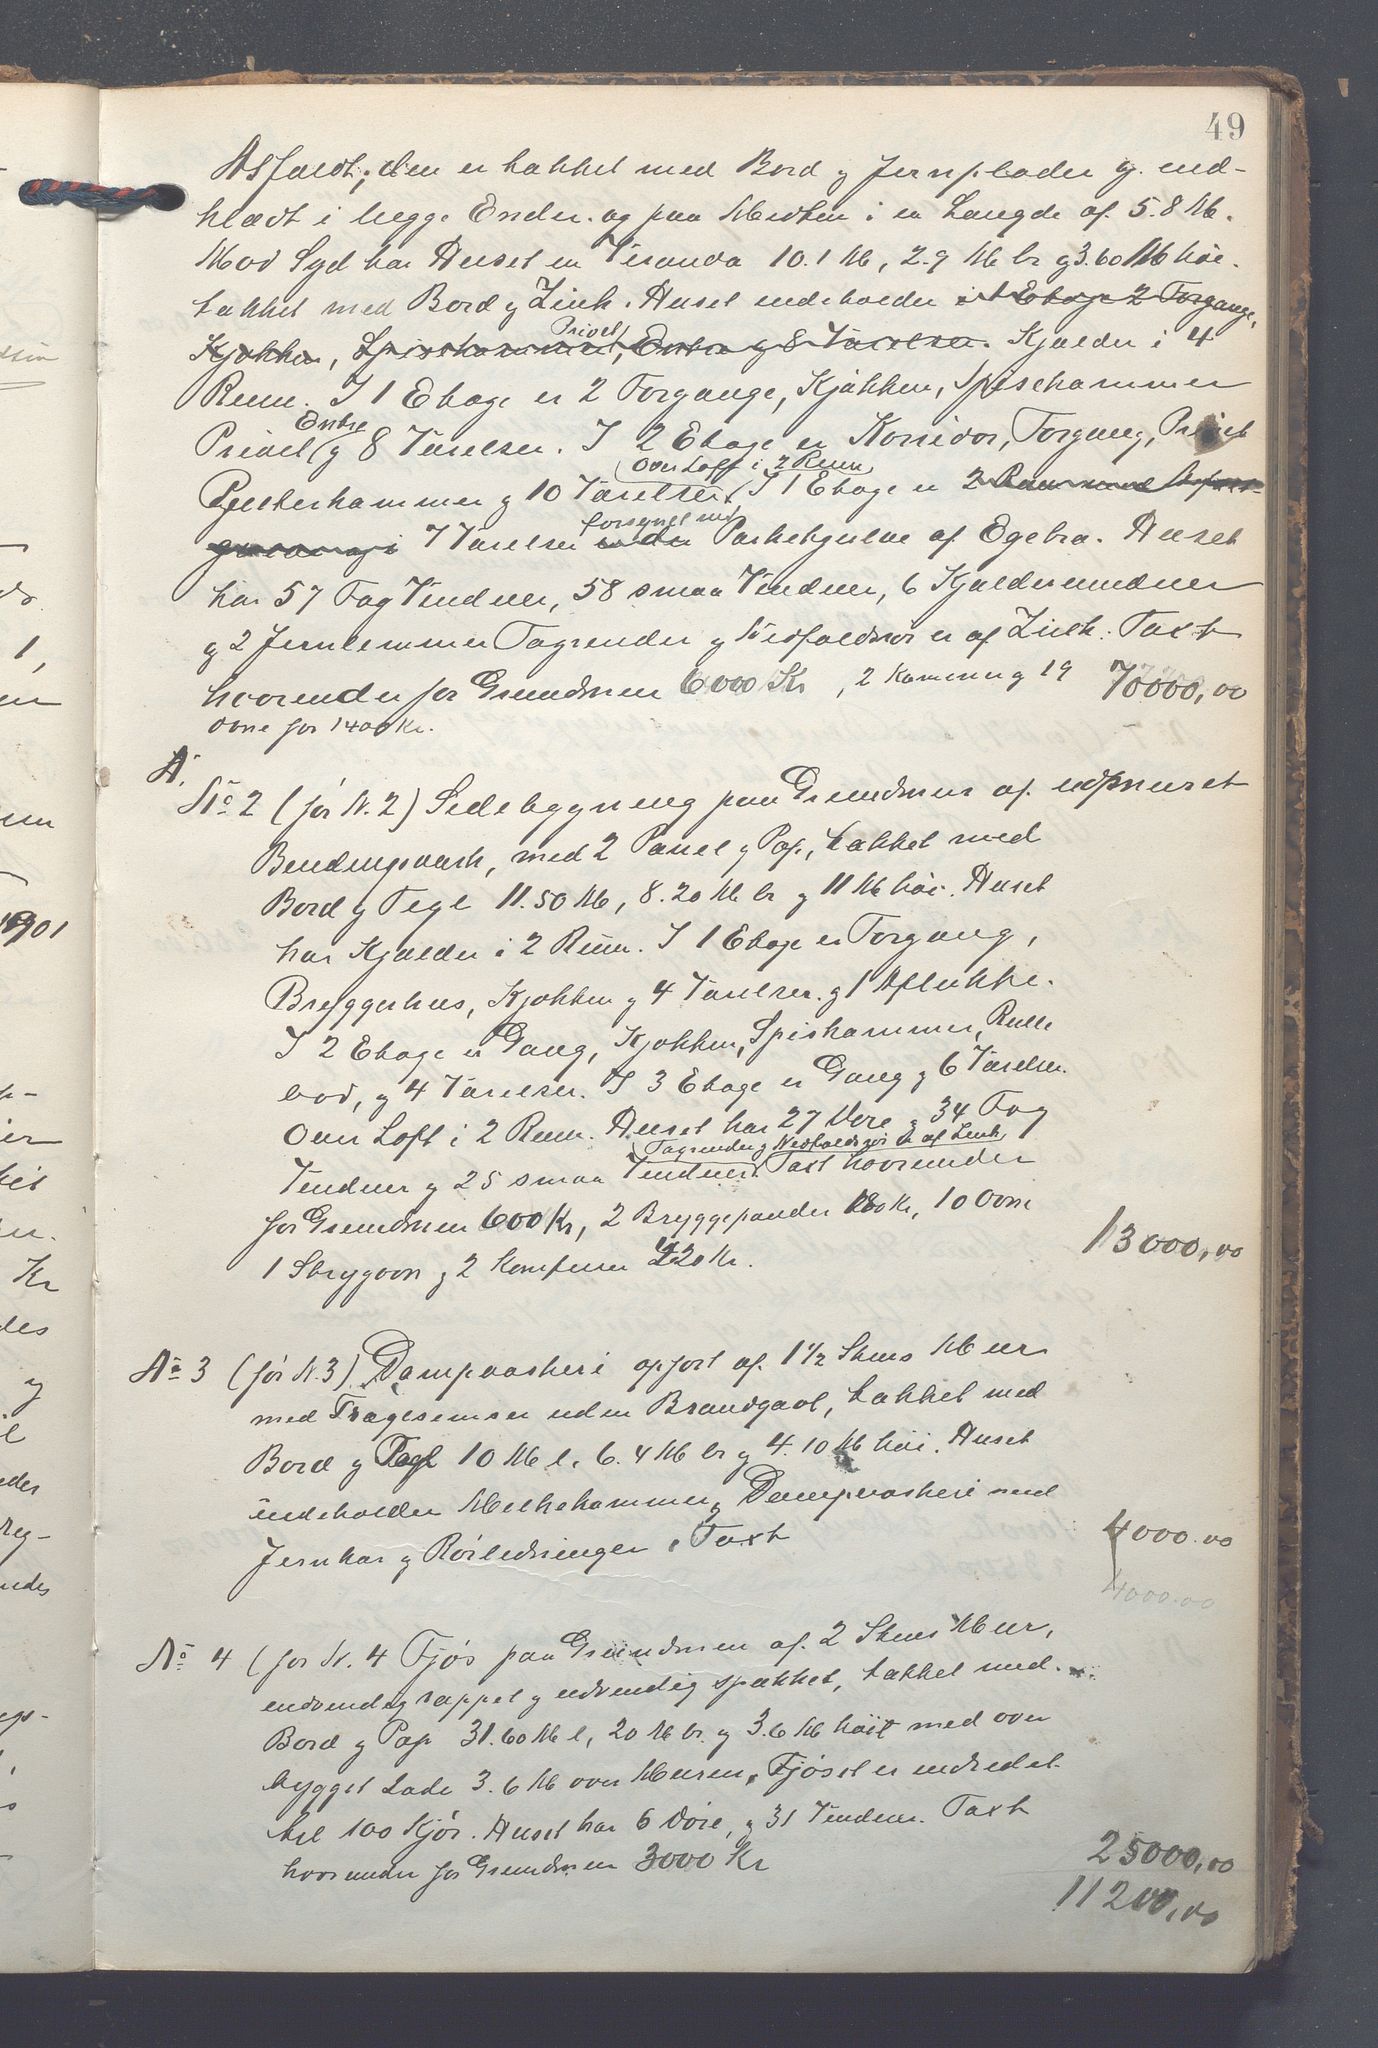 49
Asfaldt; den er tækket med Bord og Jernplader og ind-
klædt i begge Ender og paa Midten i en Længde af 5.8 M.
Mod Syd har Huset en Veranda 10.1 M, 2.9 M br og 3.60 M høi.
tækket med Bord og Zink. Huset indeholder i 1 Etage 2 Forgange,
Kjøkken, Spisekammer, Privet, Entre og 8 Værelser. Kjælder i 4
Rum. I 1 Etage er 2 Forgange, Kjøkken, Spisekammer
Privet Entre og 8 Værelser. I 2 Etage er Korridor, Forgang, Privet
Pulterkammer og 10 Værelser. Over Loft i 2 Rum. I 1 Etage er 2 Rum med
7 Værelser forsynet med Parketgulve af Egetræ. Huset
har 57 Fag Vinduer, 58 smaa Vinduer, 6 Kjældervinduer
og 2 Jernlemmer Tagrender og Nedfaldsrør er af Zink. Taxt
hvorunder for Grundmuren 6000 Kr, 2 Kaminer og 19 70000,00
ovne for 1400 Kr.
A.
No 2 (før N. 2) Sidebygning paa Grundmur af udmuret
Bindingsværk, med 2 Panel og Pap, tækket med
Bord og Tegl 11.50 M, 8.20 M br og 11 M høi. Huset
har Kjælder i 2 Rum. I 1 Etage er Forgang,
Bryggerhus, Kjøkken og 4 Værelser og 1 Aflukke.
I 2 Etage er Gang, Kjøkken, Spiskammer, Rulle
bod, og 4 Værelser. I 3 Etage er Gang og 6 Værelser.
Over Loft i 2 Rum. Huset har 27 Døre og 34 Fag
Vinduer og 25 smaa Vinduer. Tagrender og Nedfaldsrør er af Zink. Taxt hvorunder
for Grundmuren 600 Kr, 2 Bryggepander 180 Kr, 10 Ovne
1 Strygovn og 2 Komfurer 420 Kr. 13000,00
No 3 (før N. 3) Dampvaskeri opført af 1 1/2 Stens Mur
med Trægesimser uden Brandgavl, tækket med
Bord og Tegl 10 M l, 6.4 M br og 4.10 M høi. Huset
indeholder Melkekammer og Dampvaskeri med
Jernkar og Rørledninger. Taxt 4000.00
4000.00
No 4 (før N. 4 Fjøs paa Grundmur af 2 Stens Mur,
indvendig rappet og udvendig spækket, tækket med
Bord og Pap 31.60 M l, 20 M br. og 3.6 M høit med over
bygget Lade 3.6 M over Muren. Fjøset er indredet
til 100 Kjør. Huset har 6 Døre, og 31 Vinduer. Taxt
hvorunder for Grundmuren 3000 Kr 25000,00
11200,00
1901